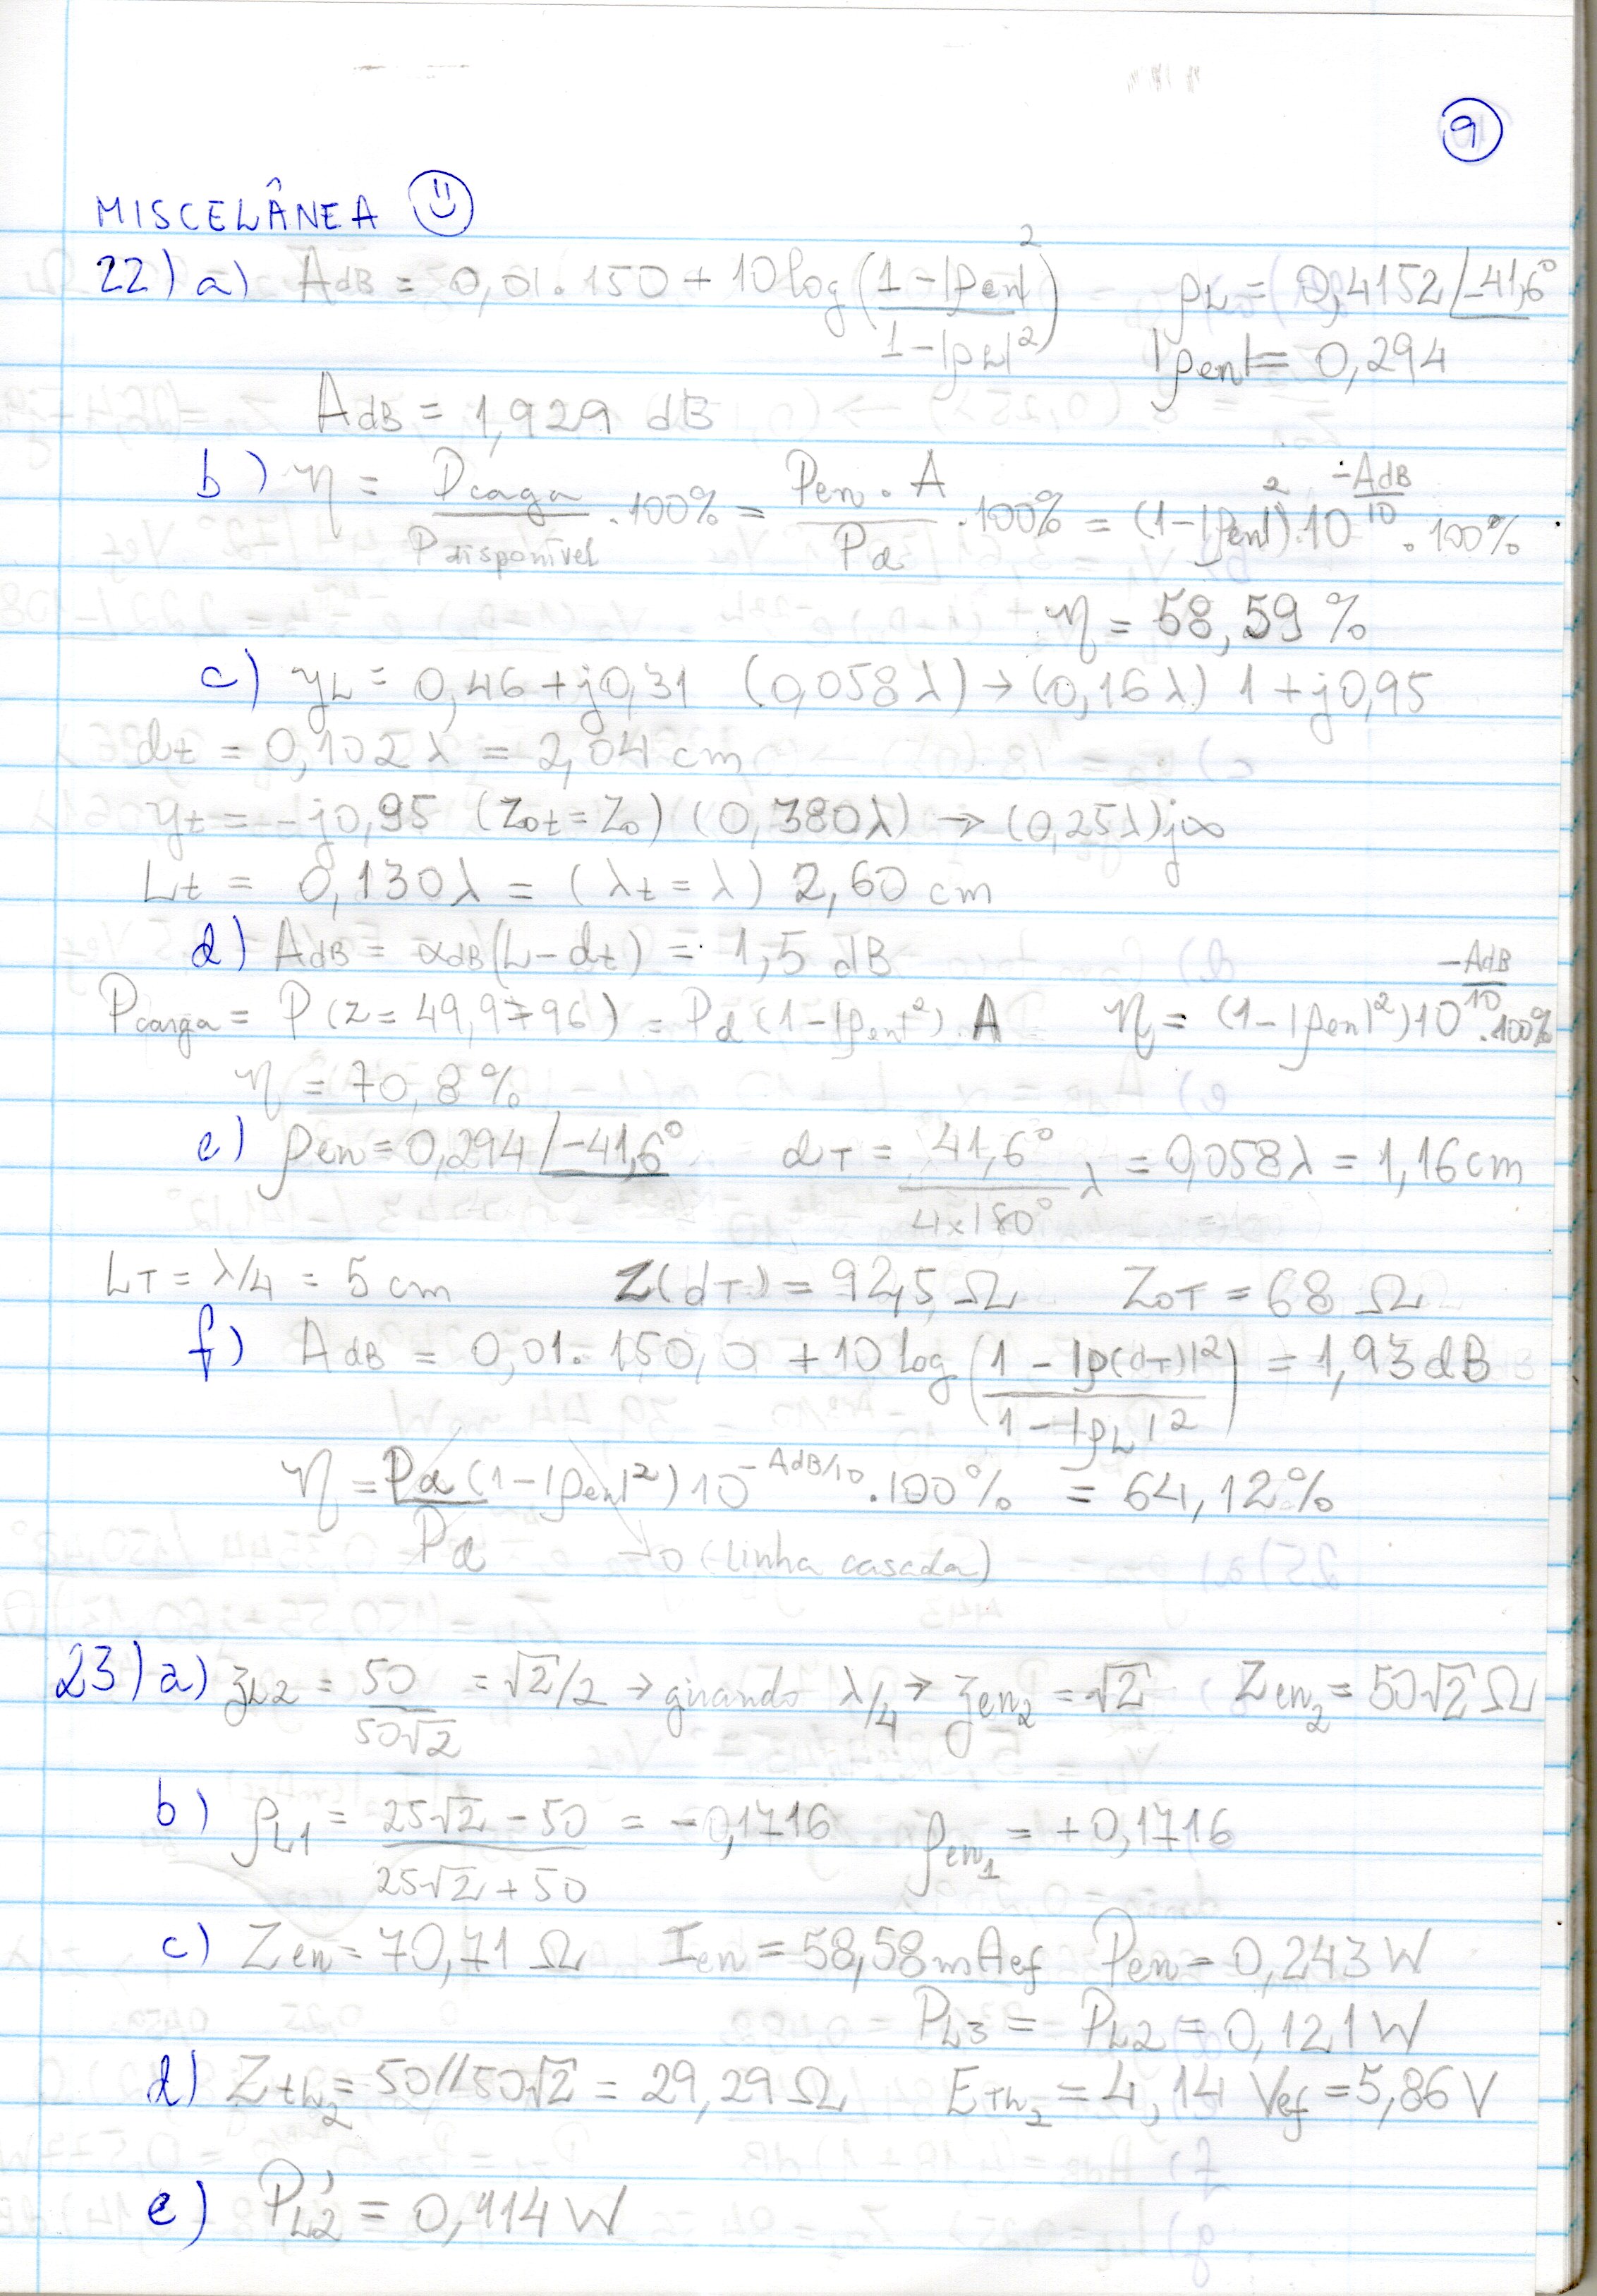 9
MISCELÂNEA
22) a) AdB = 0,01.150 + 10 log((1-|ρen|²)/(1-|ρL|²)) ρL = 0,4152 /-41,6°
|ρen| = 0,294
AdB = 1,929 dB
b) η = Pcaga/Pdisponível .100% = Pen . A/Pd .100% = (1-|ρen|²).10^(-AdB/10) . 100%
η = 58,59 %
c) yL = 0,46 + j0,31 (0,058λ) → (0,16λ) 1 + j0,95
dt = 0,102λ = 2,04 cm
yt = -j0,95 (Z0t = Z0) (0,380λ) → (0,25λ) j∞
Lt = 0,130λ = (λt = λ) 2,60 cm
d) AdB = αdB(L-dt) = 1,5 dB
Pcarga = P(z = 49,9796) = Pd (1-|ρen|²). A η = (1-|ρen|²)10^(-AdB/10) .100%
η = 70,8 %
e) ρen = 0,294 /-41,6° dT = 41,6°/4×180° λ = 0,058λ = 1,16 cm
LT = λ/4 = 5 cm Z(dT) = 92,5 Ω Z0T = 68 Ω
f) AdB = 0,01. 150,0 + 10 log((1 - |ρ(dT)|²)/(1-|ρL|²)) = 1,93 dB
η = Pd (1-|ρen|²) 10^(-AdB/10) .100% / Pd = 64,12%
→ 0 (linha casada)
23) a) zL2 = 50/50√2 = √2/2 → girando λ/4 → zen2 = √2 Zen2 = 50√2 Ω
b) ρL1 = (25√2 - 50)/(25√2 + 50) = -0,1716 ρen1 = +0,1716
c) Zen = 70,71 Ω Ien = 58,58 mAef Pen = 0,243 W
PL3 = PL2 = 0,121 W
d) Zth2 = 50//50√2 = 29,29 Ω ETh2 = 4,14 Vef = 5,86 V
e) PL2' = 0,114 W